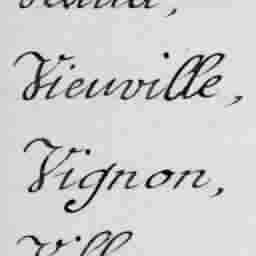 Vieuville,
Vignon,